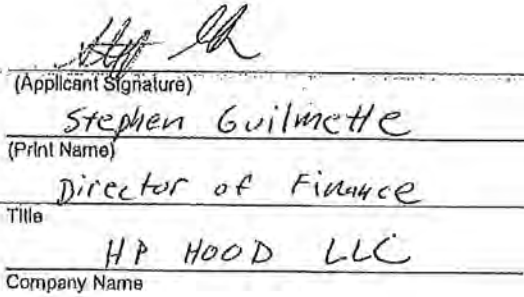 (Applicant Signature)
Stephen Guilmette
(Print Name)
Director of Finance
Title
HP HOOD LLC
Company Name